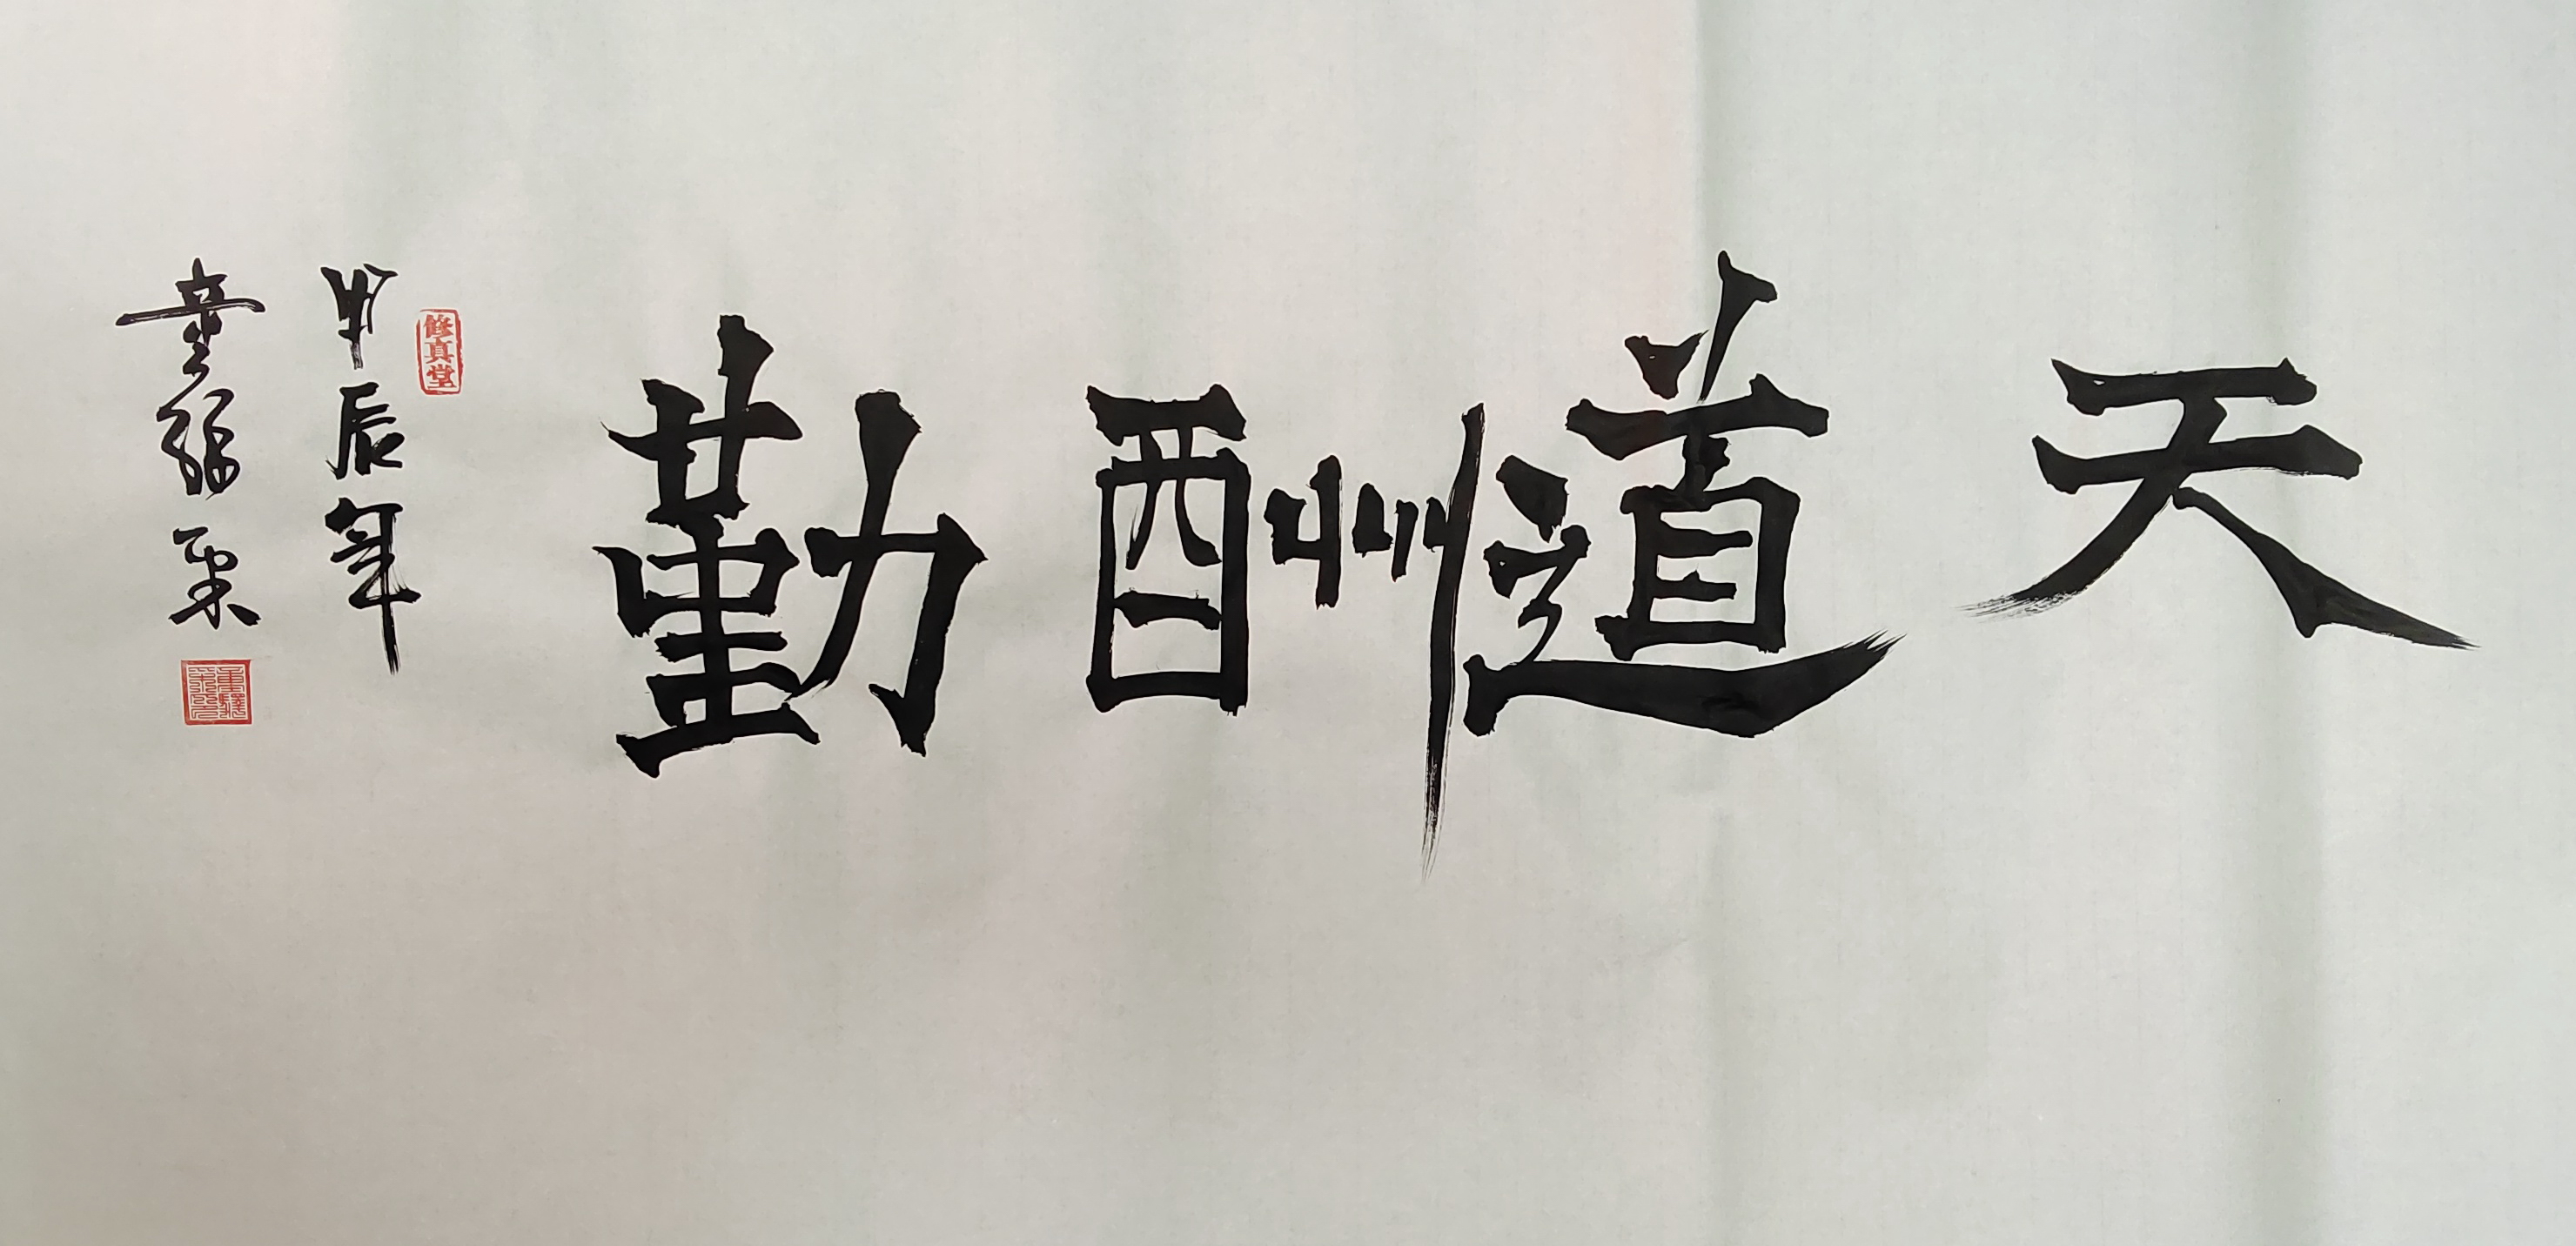 天道酬勤
甲辰年
修真堂